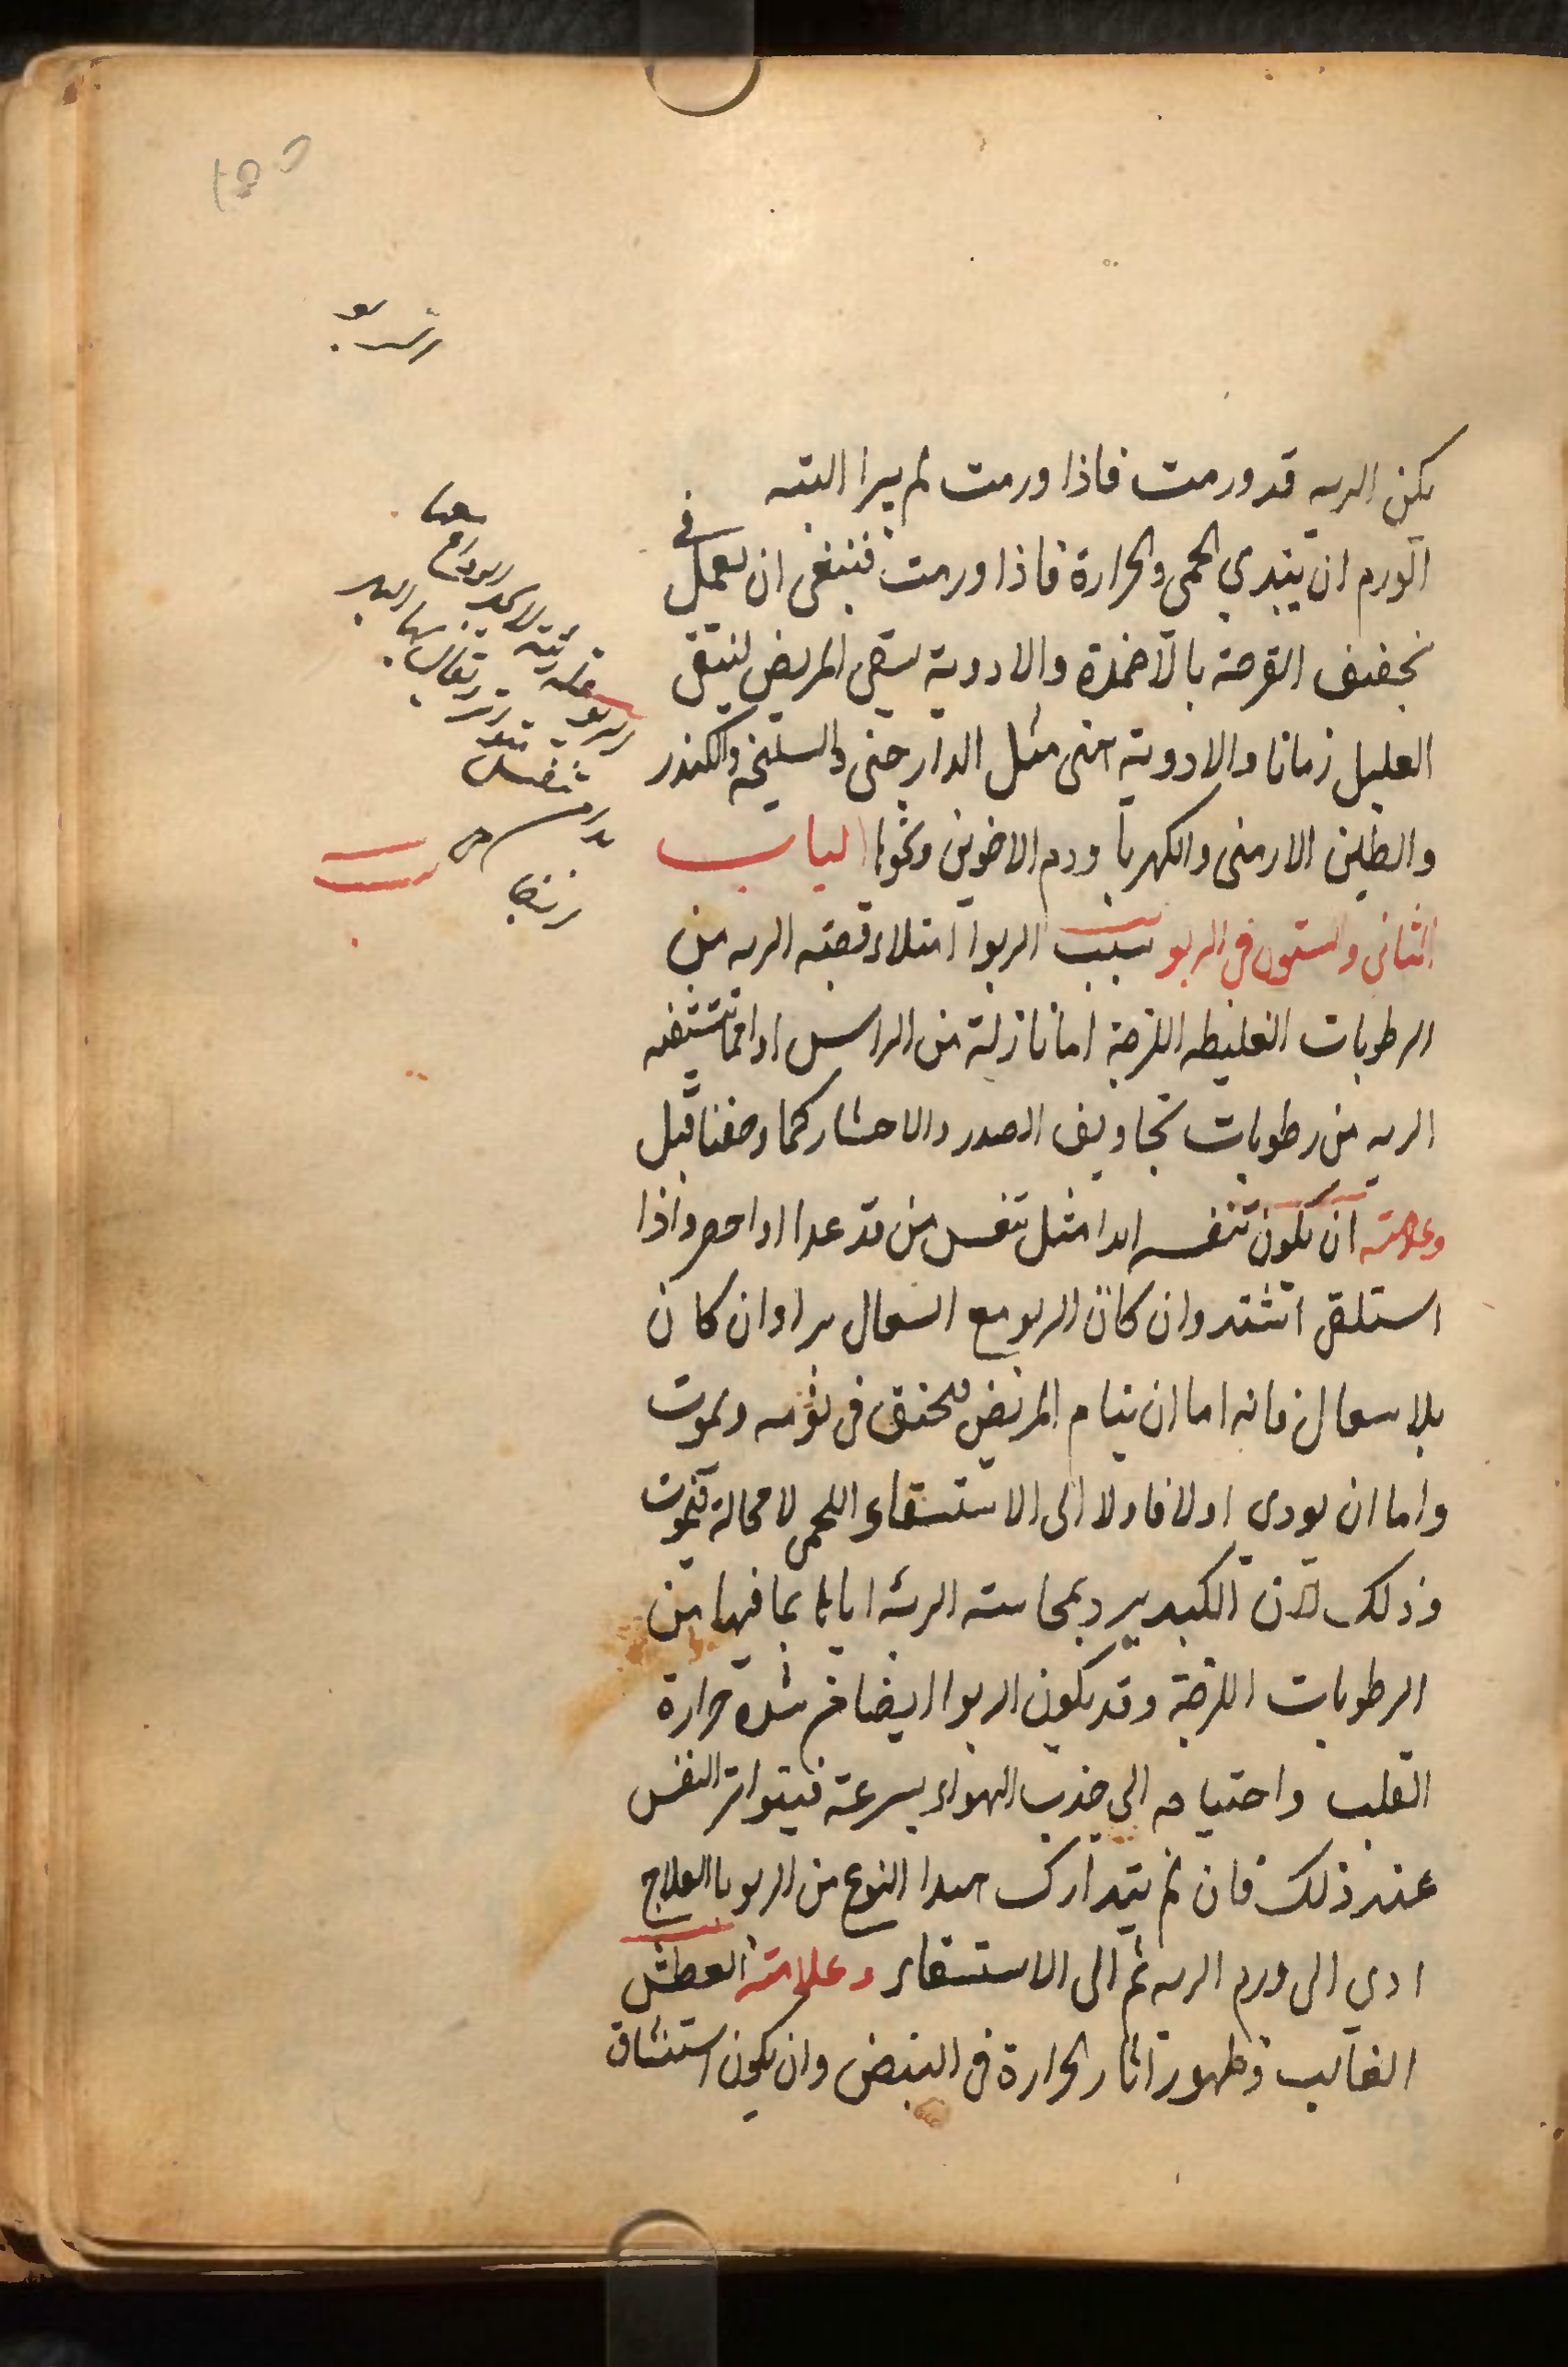 يكن الريه قد ورمت فاذا ورمت لم يبرا البته
الورم ان يبتدي الحمى والحرارة فاذا ورمت فينبغى ان يعمل فى
تجفيف القرحة بالاضمدة والادوية يسقى المريض لينقى
العليل زمانا والادوية هى مثل الدارجينى والسليخه والكندر
والطين الارمنى والكهربا ودم الاخوين ونحوها الباب
الثانى والستون فى الربو سبب الربوا امتلاء قصبة الريه من
الرطوبات الغليظه اللزجة اما نازلة من الراس او انما تنشفه
الريه من رطوبات تجاويف الصدر والاحشاء كما وصفنا قبل
وعلامته ان يكون تنفسه ابدا مثل تنفس من قد عدا او احصر واذا
استلقى اشتد وان كان الربو مع السعال برا وان كان
بلا سعال فانه اما ان ينام المريض فيختنق فى نومه ويموت
واما ان يودى اولا فاولا الى الاستسقاء اللحمى لا محالة فيموت
وذلك لان الكبد يبرد بمماسته الرئه اياها بما فيها من
الرطوبات اللزجة وقد يكون الربوا ايضا من شدة حرارة
القلب واحتياجه الى جذب الهواء بسرعة فيتواتر النفس
عند ذلك فان لم يتدارك هذا النوع من الربو بالعلاج
ادي الى ورم الريه ثم الى الاستسقاء وعلامته العطش
الغالب وظهور اثار الحرارة فى النبض وان يكون استنشاق